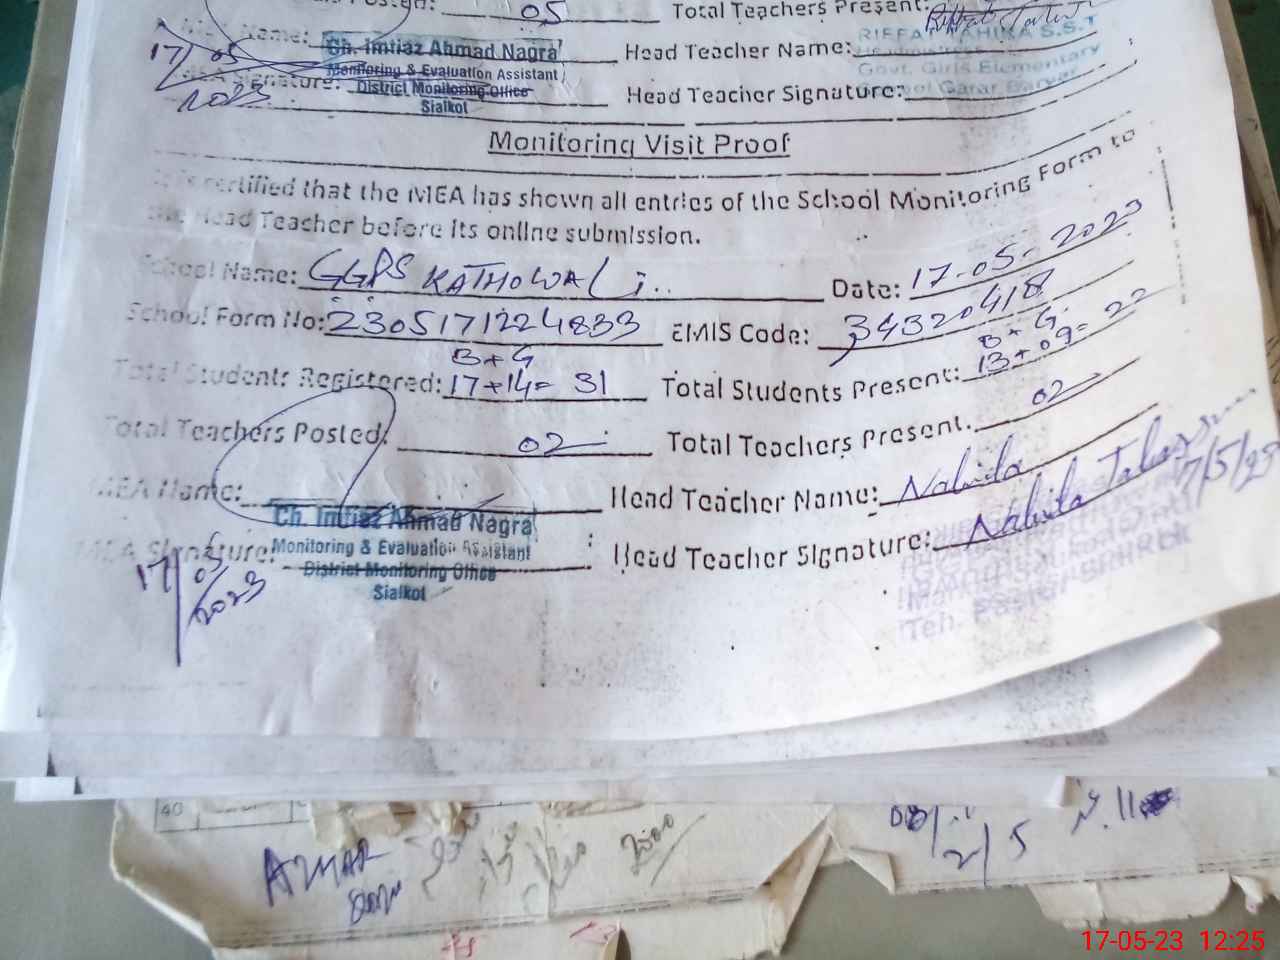 05 Total Teachers Present:
Name: Ch. Imtiaz Ahmad Nagra Head Teacher Name: RIFFAT
17/05/2023 Monitoring & Evaluation Assistant Govt. Girls Elementary
Signature: District Monitoring Office Head Teacher Signature:
Sialkot
Monitoring Visit Proof
It is certified that the MEA has shown all entries of the School Monitoring Form to
the Head Teacher before its online submission.
School Name: GGPS KATHOWALI Date: 17-05-2023
School Form No: 2305171224833 EMIS Code: 34320418
B+G B+G
Total Students Registered: 17+14= 31 Total Students Present: 13+09= 22
Total Teachers Posted: 02 Total Teachers Present. 02
MEA Name: Head Teacher Name: Nahida
Ch. Imtiaz Ahmad Nagra
MEA Signature: Monitoring & Evaluation Assistant Head Teacher Signature: Nahida 17/5/23
17/05/2023 District Monitoring Office
Sialkot
Teh.
40
AZHAR 2500
2/5
17-05-23 12:25